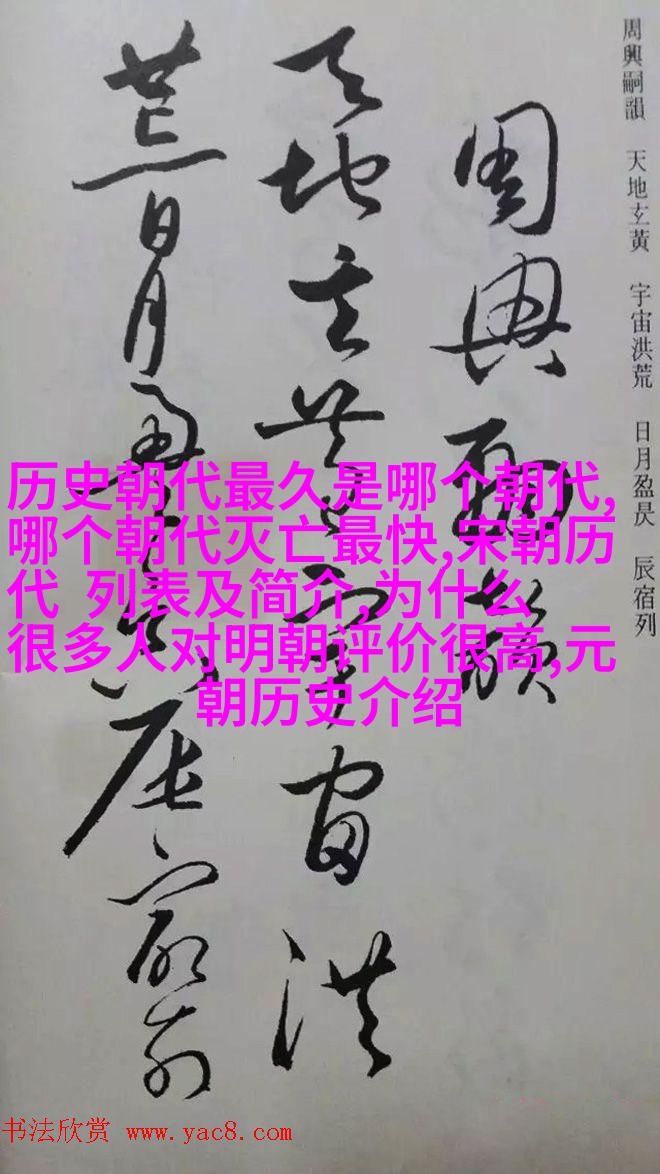 周興嗣韻 天地玄黃 宇宙洪荒 日月盈昃 辰宿列
周興嗣韻
天地玄黃宇宙洪
荒日月盈昃辰宿列
历史朝代最久是哪个朝代,
哪个朝代灭亡最快,宋朝历
代 列表及简介,为什么
很多人对明朝评价很高,元
朝历史介绍
书法欣赏 www.yac8.com